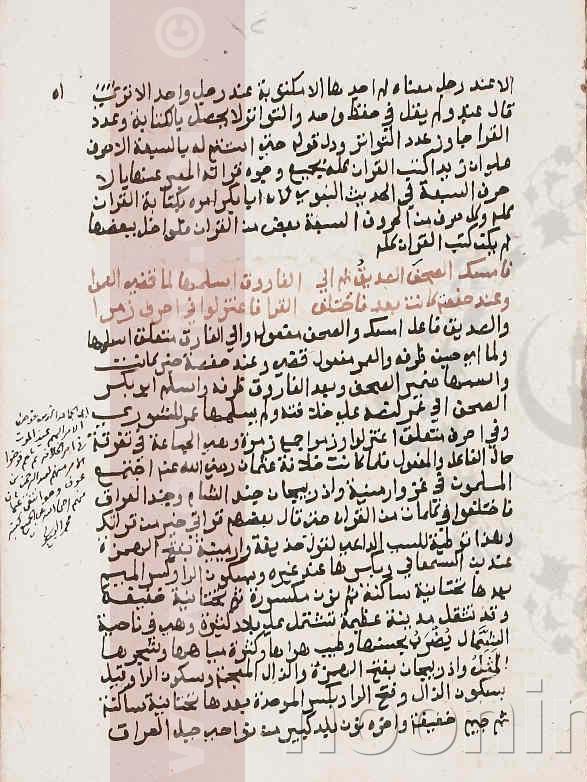 الا عند رجل معناه لم اجدها الا مكتوبة عند رجل واحد الا ترى
قال عند ولم يقل في حفظ واحد والتواتر لا يحصل بالكتابة وعدد
القرا جاوز عدد التواتر ودل قوله حتى استتم له بالسبعة الاحرف
على ان زيدا كتب القران كله بجميع وجوه قراته المعبر عنها بالا
حرف السبعة في الحديث النبوي لان ابا بكر امره بكتابة القران
كله وكل حرف من الحروف السبعة بعض من القران فلو اخل ببعضها
لم يكتب كتب القران كله
فامسك الصحف الصديق ثم الى الفاروق اسلمها لما قضى العمرا
وعند حفصة كانت بعد فاختلف القرا فاعتزلوا في احرف زمرا
والصديق فاعل امسك والصحف مفعوله والى الفاروق متعلق اسلمها
ولما اي حين ظرفه والعمر مفعول قضى وعند حفصة خبر كانت
واسمها ضمير الصحف وبعد الفاروق ظرفه واسلم ابو بكر
الصحف الى عمر لنصه على خلافته ولم يسلمها عمر للشورى
وفي احرف متعلق اعتزلوا وزمرا جمع زمرة وهي الجماعة في تفرقة
حال الفاعل والمفعول لما كانت خلافة عثمان رضي الله عنه اجتمع
المسلمون في غزو ارمينية واذربيجان جند الشام وجند العراق
فاختلفوا في كلمات من القران حتى قال بعضهم قراني خير من قرانك
وهذا توطئة للسبب الداعي لقول حذيفة وارمينية بفتح الهمزة
عند ابن السمعاني وبكسرها عند غيره وسكون الرا وكسر الميم
بعدها تحتانية ساكنة ثم نون مكسورة ثم تحتانية خفيفة
وقد تثقل مدينة عظيمة تشتمل على بلاد كثيرة وهي في ناحية
الشمال يضرب بحسنها وطيب هواها وكثرة مياهها وشجرها
المثل واذربيجان بفتح الهمزة والذال المعجم وسكون الرا وقيل
بسكون الذال وفتح الرا وبكسر الموحدة بعدها تحتانية ساكنة
ثم جيم خفيفة واخره نون بلد كبير من نواحي جبل العراق
noonin